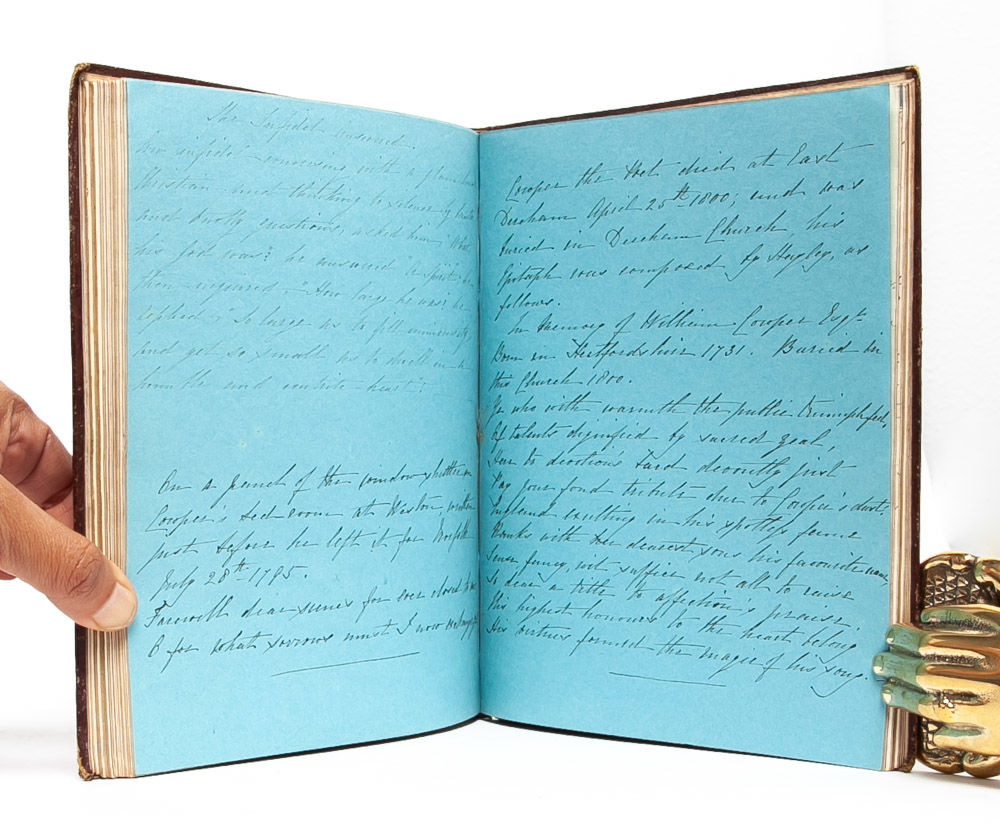 The Infidel answered.
An infidel conversing with a
Christian and thinking to silence by
and knotty questions, asked him, "What
his God was?" he answered "a Spirit" he
then enquired "How large he was? he
replied; "So large as to fill immensity
and yet so small as to dwell in a
humble and contrite heart"!
On a pannel of the window shutter in
Cowper's bed room at Weston, written
just before he left it for Norfolk
July 28th 1795.
Farewell dear scenes for ever closed to me
O for what sorrows must I now exchange ye
Cowper the Poet died at East
Dereham April 25th 1800; and was
buried in Dereham Church, his
Epitaph was composed by Hayley, as
follows.
In Memory of William Cowper Esqre
Born in Hertfordshire 1731. Buried in
this Church 1800.
Ye who with warmth the public triumph feel,
Of talents dignified by sacred zeal,
Here to devotion's bard devoutly just
Pay your fond tribute due to Cowper's dust.
England exulting in his spotless fame
Ranks with her dearest sons his favorite name,
Sense, fancy, wit suffice not all to raise
So dear a title to affection's praise.
His highest honours to the heart belong
His virtues formed the magic of his song.